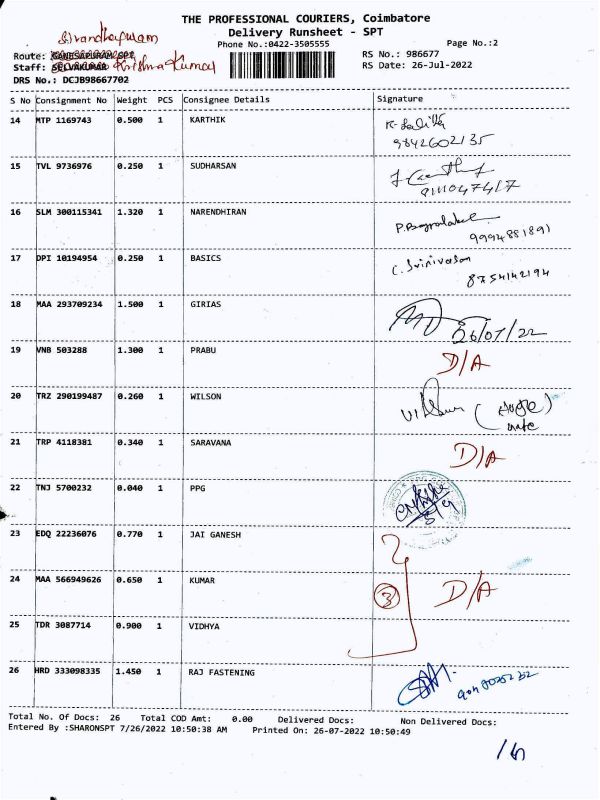 THE PROFESSIONAL COURIERS, Coimbatore
Delivery Runsheet - SPT
Phone No.:0422-3505555 Page No.:2
Sivandhapuram
Route: GANESAPURAM SPT RS No.: 986677
Staff: SELVAKUMAR Krishna Kumar RS Date: 26-Jul-2022
DRS No.: DCJB98667702
S No Consignment No Weight PCS Consignee Details Signature
14 MTP 1169743 0.500 1 KARTHIK
9842602135
15 TVL 9736976 0.250 1 SUDHARSAN
16 SLM 300115341 1.320 1 NARENDHIRAN
9994881891
17 DPI 10194954 0.250 1 BASICS C. Srinivasan
8754142194
18 MAA 293709234 1.500 1 GIRIAS
26/07/22
19 VNB 503288 1.300 1 PRABU D/A
20 TRZ 290199487 0.260 1 WILSON
21 TRP 4118381 0.340 1 SARAVANA D/A
22 TNJ 5700232 0.040 1 PPG
23 EDQ 22236076 0.770 1 JAI GANESH
24 MAA 566949626 0.650 1 KUMAR 3 D/A
25 TDR 3087714 0.900 1 VIDHYA
26 HRD 333098335 1.450 1 RAJ FASTENING
Total No. Of Docs: 26 Total COD Amt: 0.00 Delivered Docs: Non Delivered Docs:
Entered By :SHARONSPT 7/26/2022 10:50:38 AM Printed On: 26-07-2022 10:50:49